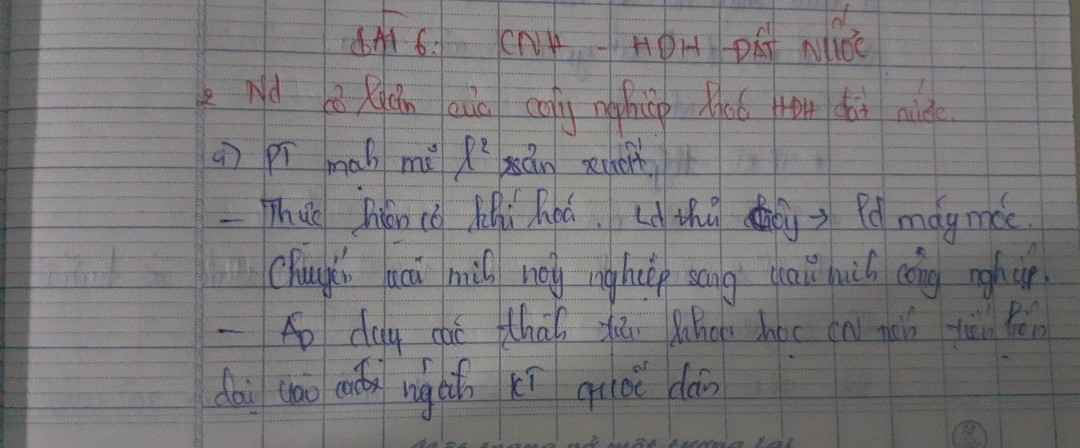 BÀI 6: CNH - HĐH ĐẤT NƯỚC
2 Nd cơ bản của công nghiệp hoá HĐH đất nước.
a) PT mạh mẽ l² sản xuất
- Thực hiện cơ khí hoá. Lđ thủ côg → lđ máy móc.
Chuyển văn mih nôg nghiệp sang văn mih công nghiệp.
- Áp dụg các thàh tựu khoa học CN tiên tiến hiện
đại vào các ngàh KT quốc dân